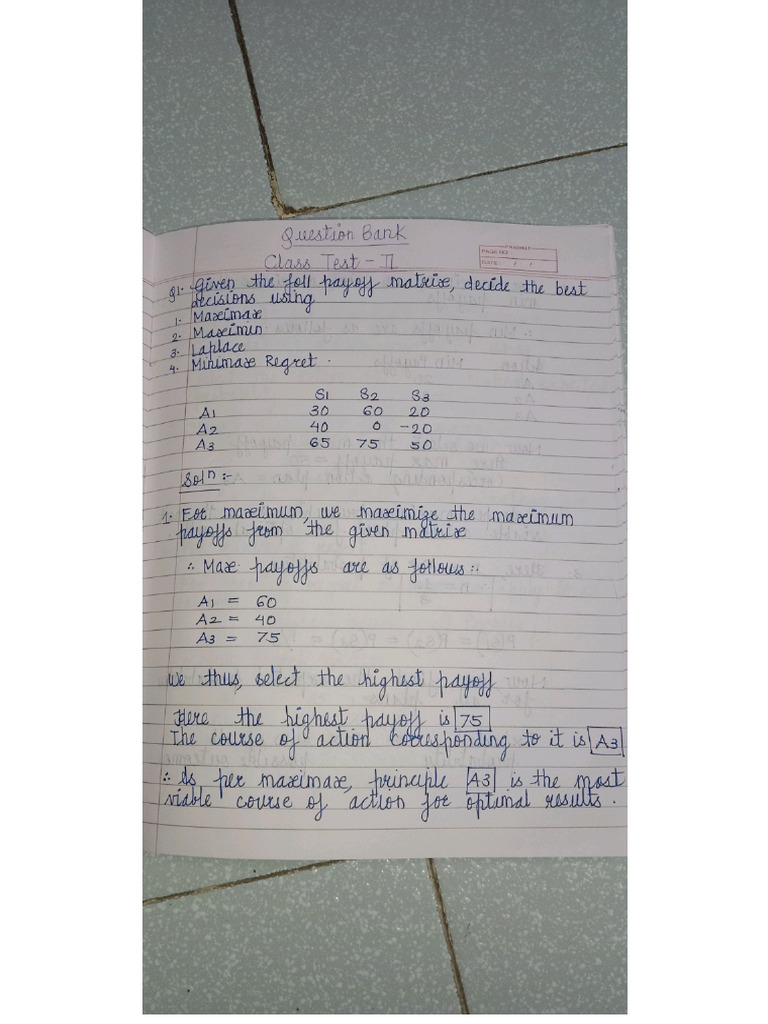 Question Bank
PAGE NO.
DATE: / /
Class Test - II
Q1. Given the foll payoff matrix, decide the best
decisions using
1. Maximax
2. Maximin
3. Laplace
4. Minimax Regret.
S1 S2 S3
A1 30 60 20
A2 40 0 -20
A3 65 75 50
Solⁿ :-
1. For maximum, we maximize the maximum
payoffs from the given matrix
∴ Max payoffs are as follows:-
A1 = 60
A2 = 40
A3 = 75
We thus, select the highest payoff
Here the highest payoff is 75
The course of action corresponding to it is A3
∴ As per maximax, principle A3 is the most
viable course of action for optimal results.